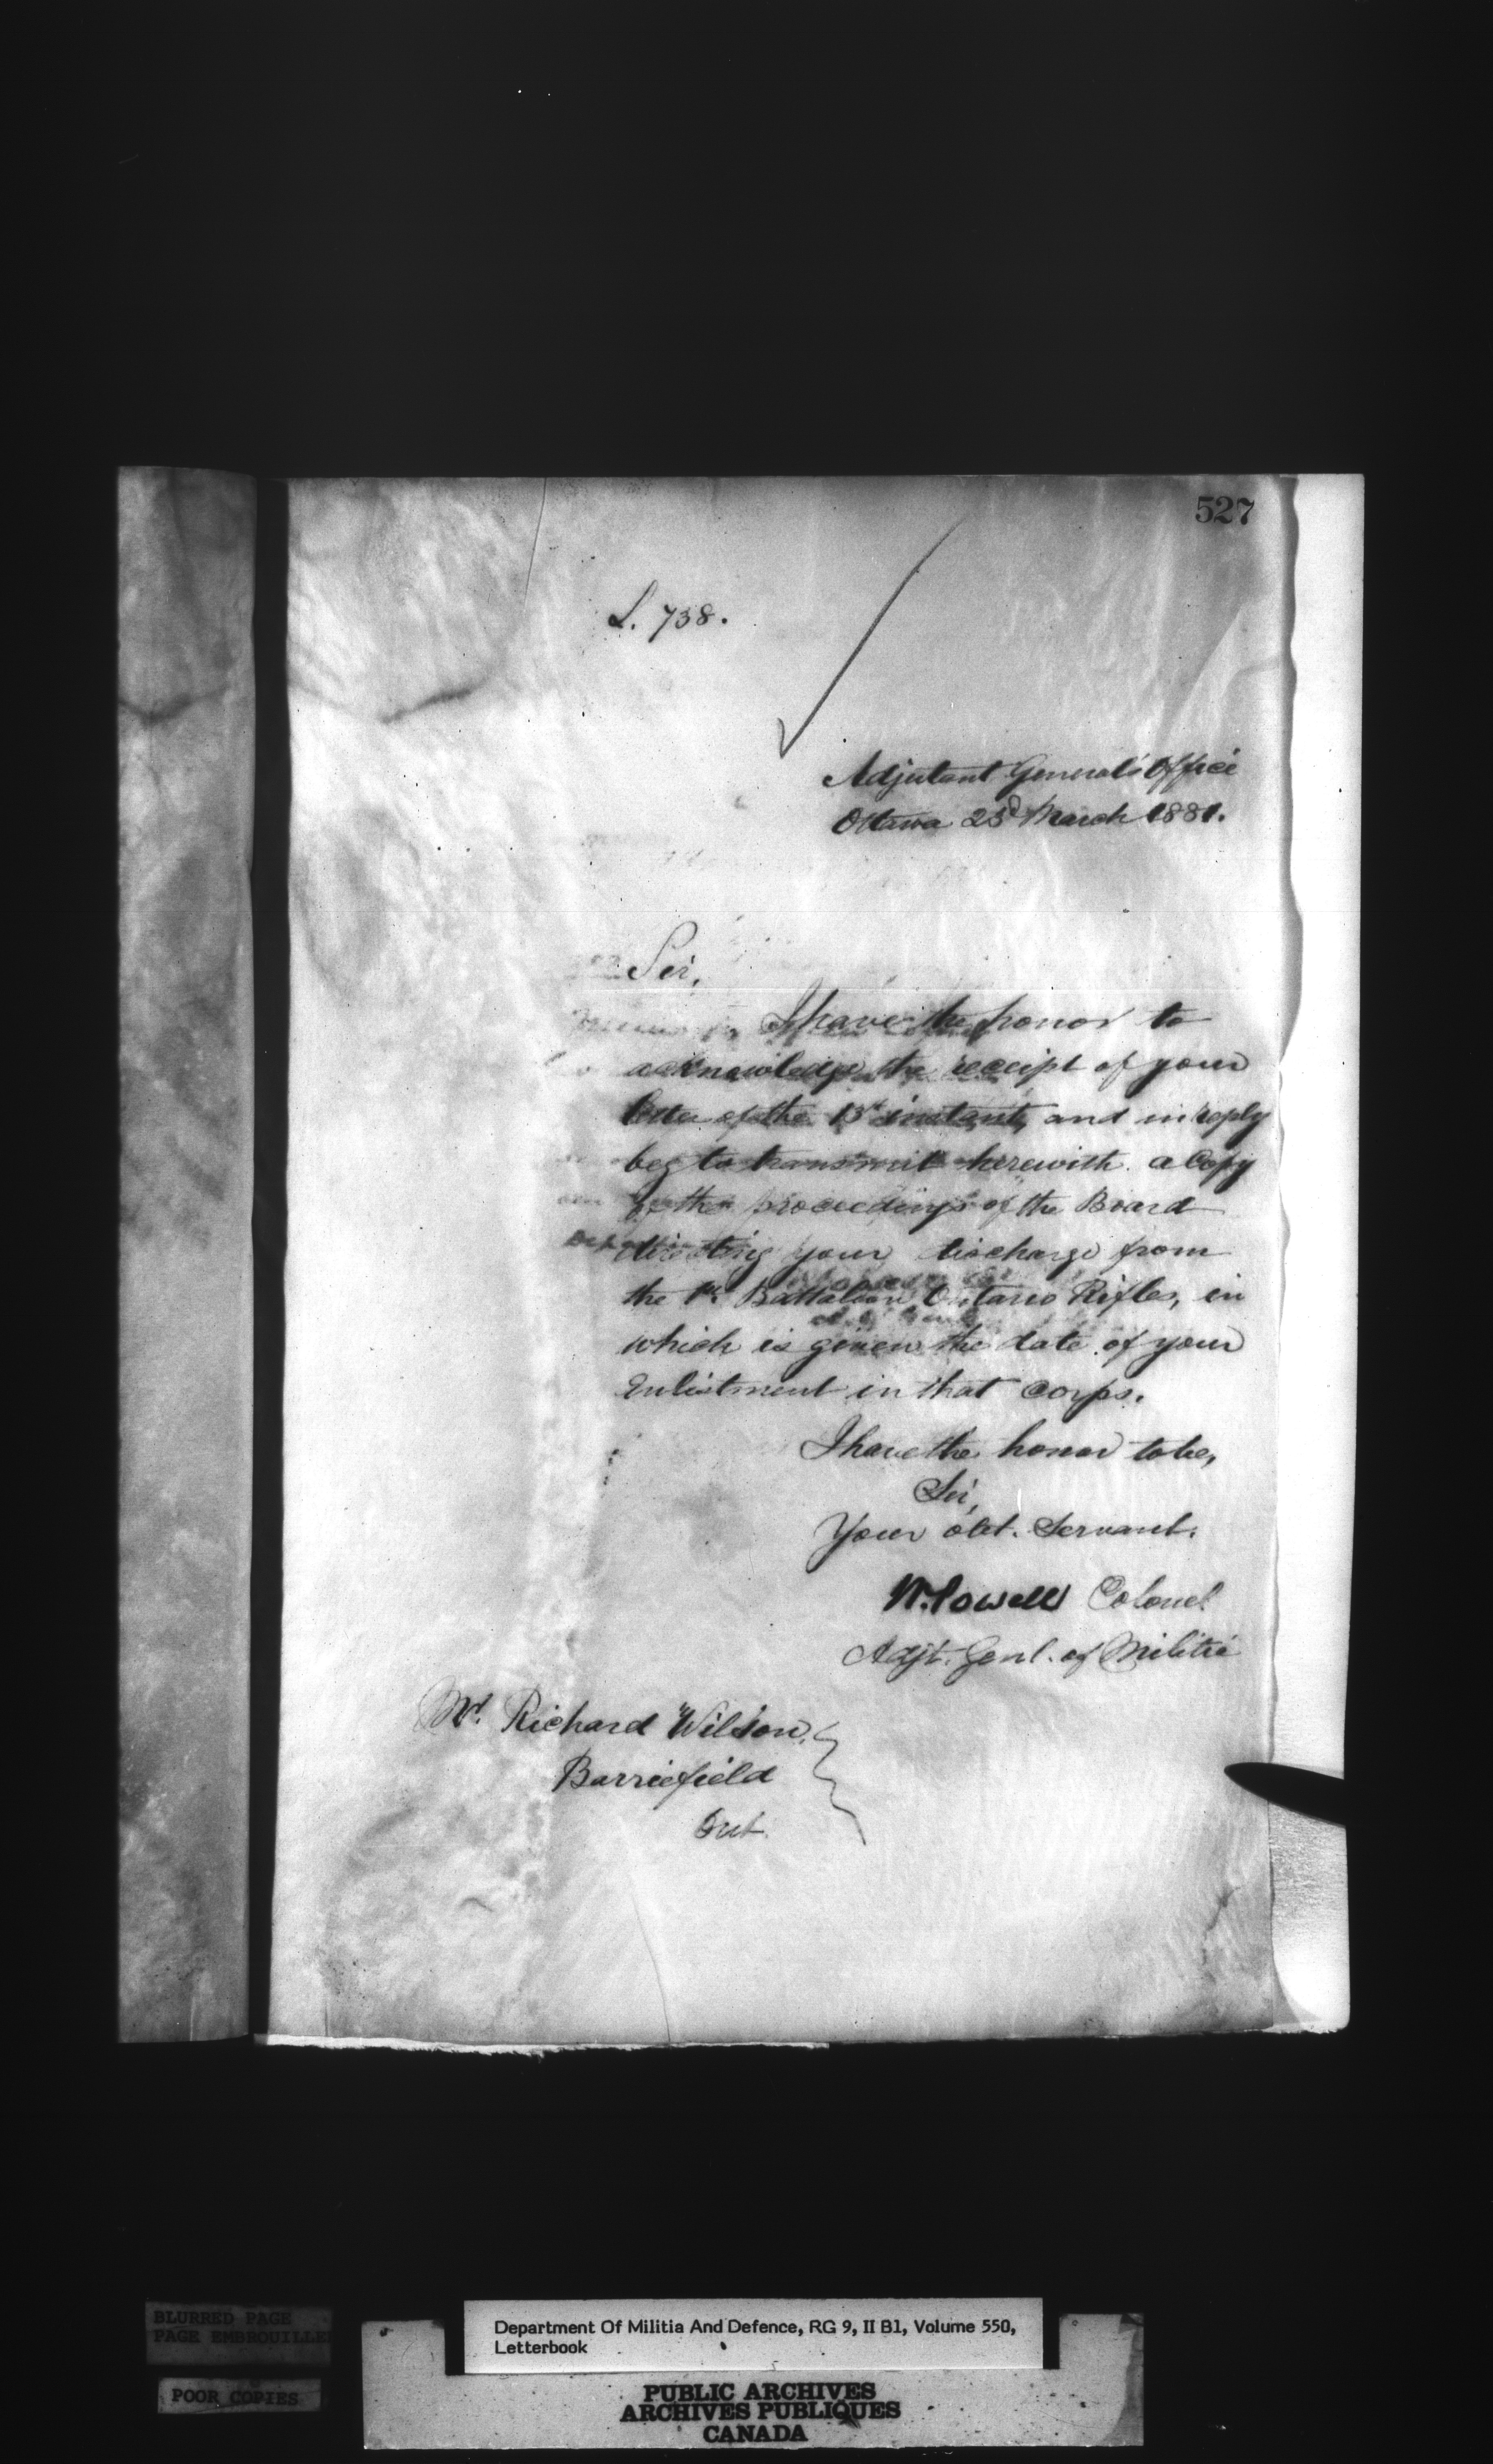 527
L. 738.
Adjutant General's Office
Ottawa 23d March 1881.
Sir,
I have the honor to
acknowledge the receipt of your
letter of the instant, and in reply
beg to transmit herewith a Copy
of the proceedings of the Board
directing your discharge from
the 1st. Battalion Ontario Rifles, in
which is given the date of your
Enlistment in that Corps.
I have the honor to be,
Sir,
Your obt. Servant.
W. Powell Colonel
Adjt. Genl. of Militia
Mr. Richard Wilson,
Barriefield
Ont.
BLURRED PAGE
PAGE EMBROUILLEE
POOR COPIES
Department Of Militia And Defence, RG 9, II B1, Volume 550,
Letterbook
PUBLIC ARCHIVES
ARCHIVES PUBLIQUES
CANADA